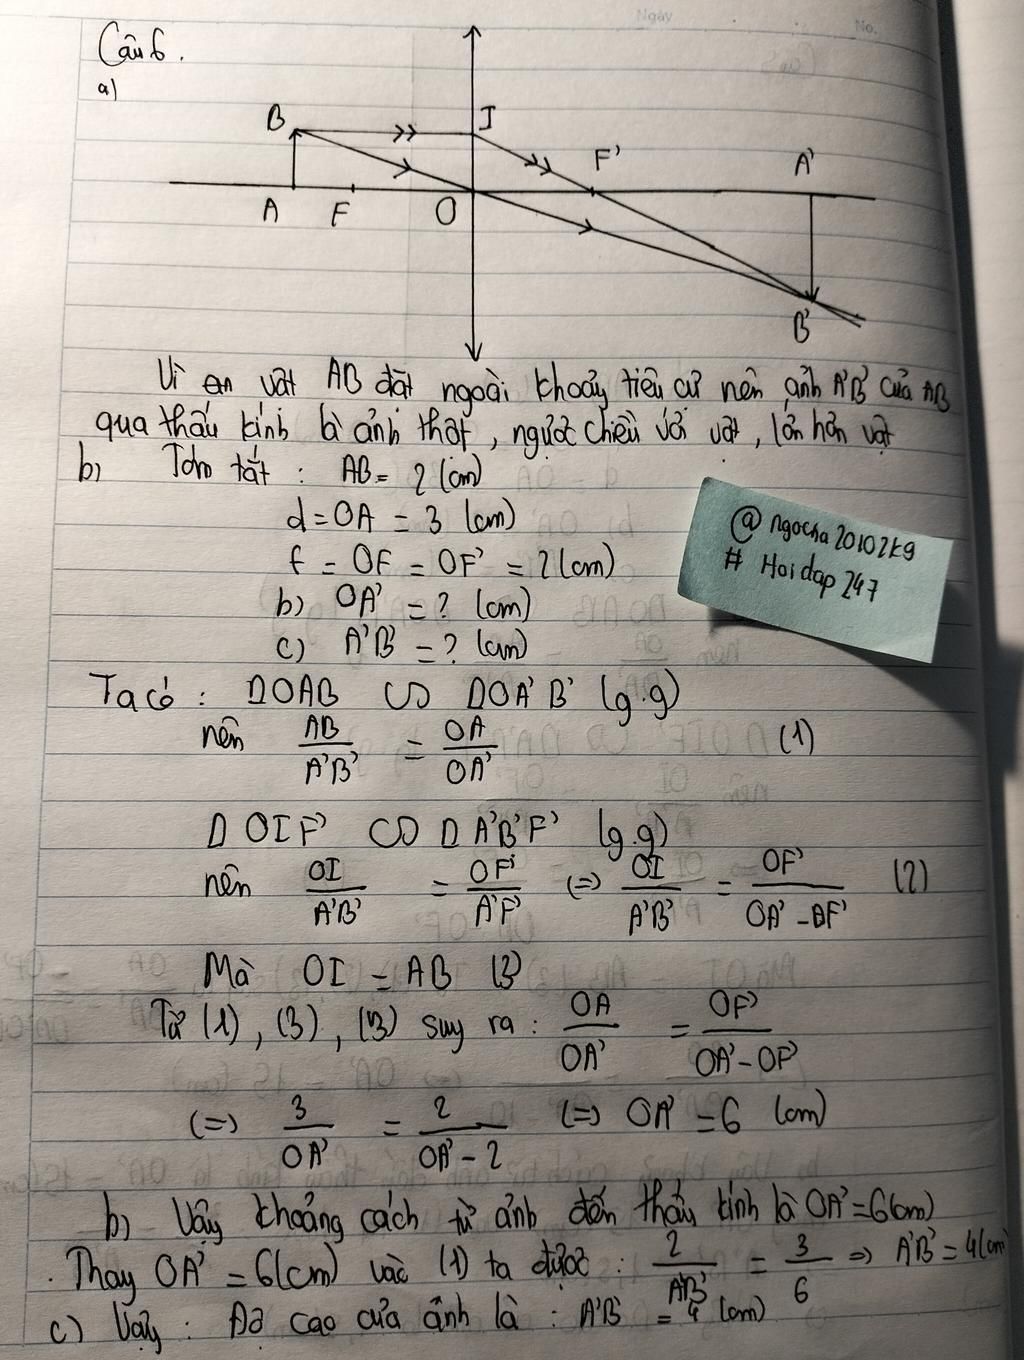 Ngày
No.
Câu 6.
a)
B I F' A'
A F O
B'
Vì vật AB đặt ngoài khoảng tiêu cự nên ảnh A'B' của AB
qua thấu kính là ảnh thật, ngược chiều với vật, lớn hơn vật
b) Tóm tắt : AB = 2 (cm)
d = OA = 3 (cm)
f = OF = OF' = 2 (cm)
b) OA' = ? (cm)
c) A'B' = ? (cm)
@ ngocha20102kg
# Hoidap247
Ta có : ΔOAB ∽ ΔOA'B' (g.g)
nên AB/A'B' = OA/OA' (1)
Δ OIF' ∽ Δ A'B'F' (g.g)
nên OI/A'B' = OF'/A'F' (=) OI/A'B' = OF'/OA' - OF' (2)
Mà OI = AB (3)
Từ (1), (3), (3) suy ra : OA/OA' = OF'/OA' - OF'
(=) 3/OA' = 2/OA' - 2 (=) OA' = 6 (cm)
b) Vậy khoảng cách từ ảnh đến thấu kính là OA' = 6(cm)
. Thay OA' = 6(cm) vào (1) ta được : 2/A'B' = 3/6 => A'B' = 4(cm)
c) Vậy : Độ cao của ảnh là : A'B' = 4 (cm)